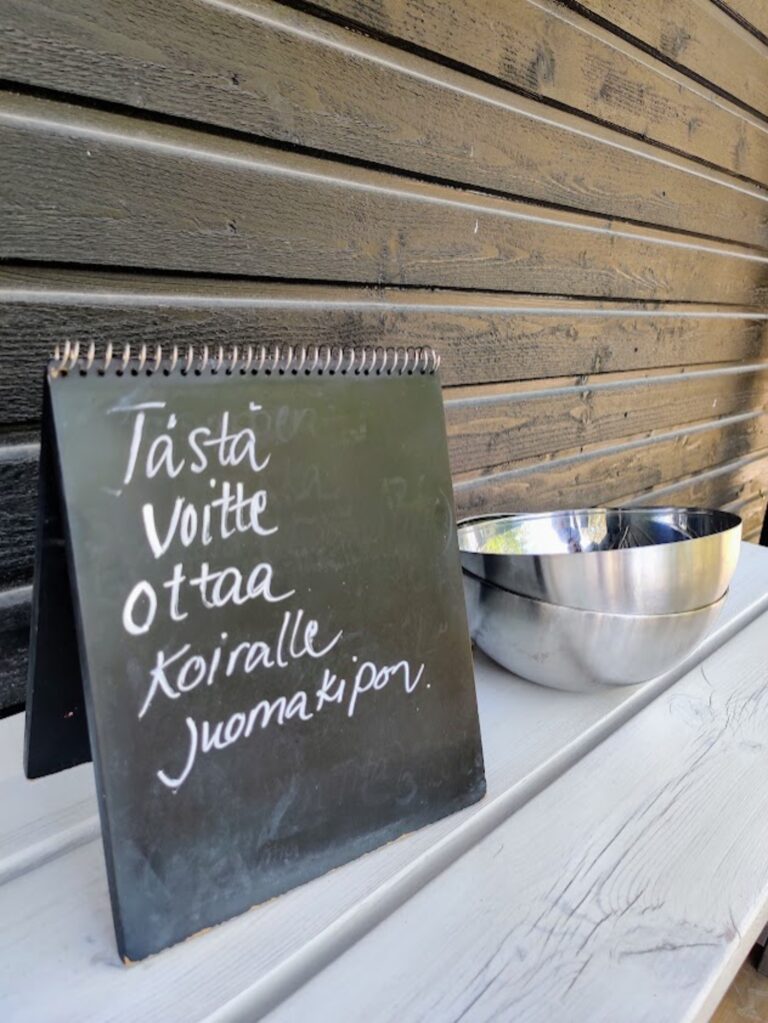 Tästä
voitte
ottaa
koiralle
juomakipon.